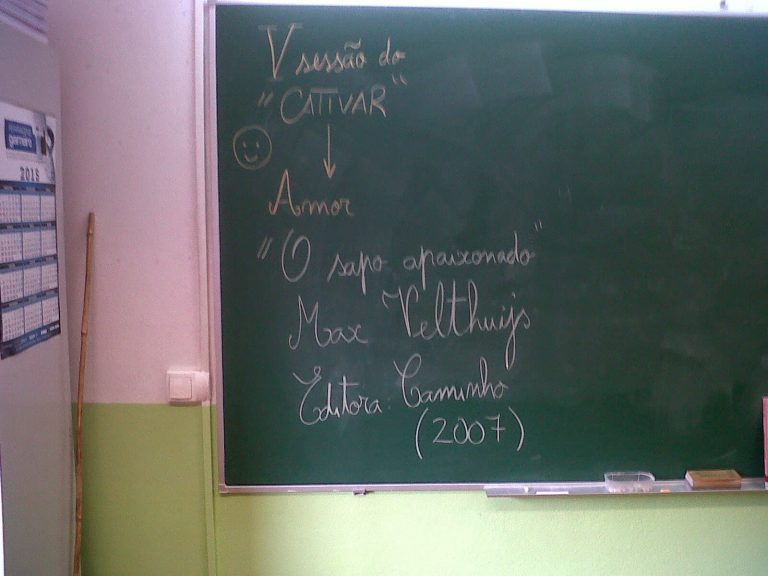 V sessão do
"CATIVAR"
Amor
"O sapo apaixonado"
Max Velthuijs
Editora: Caminho
(2007)
gameiro